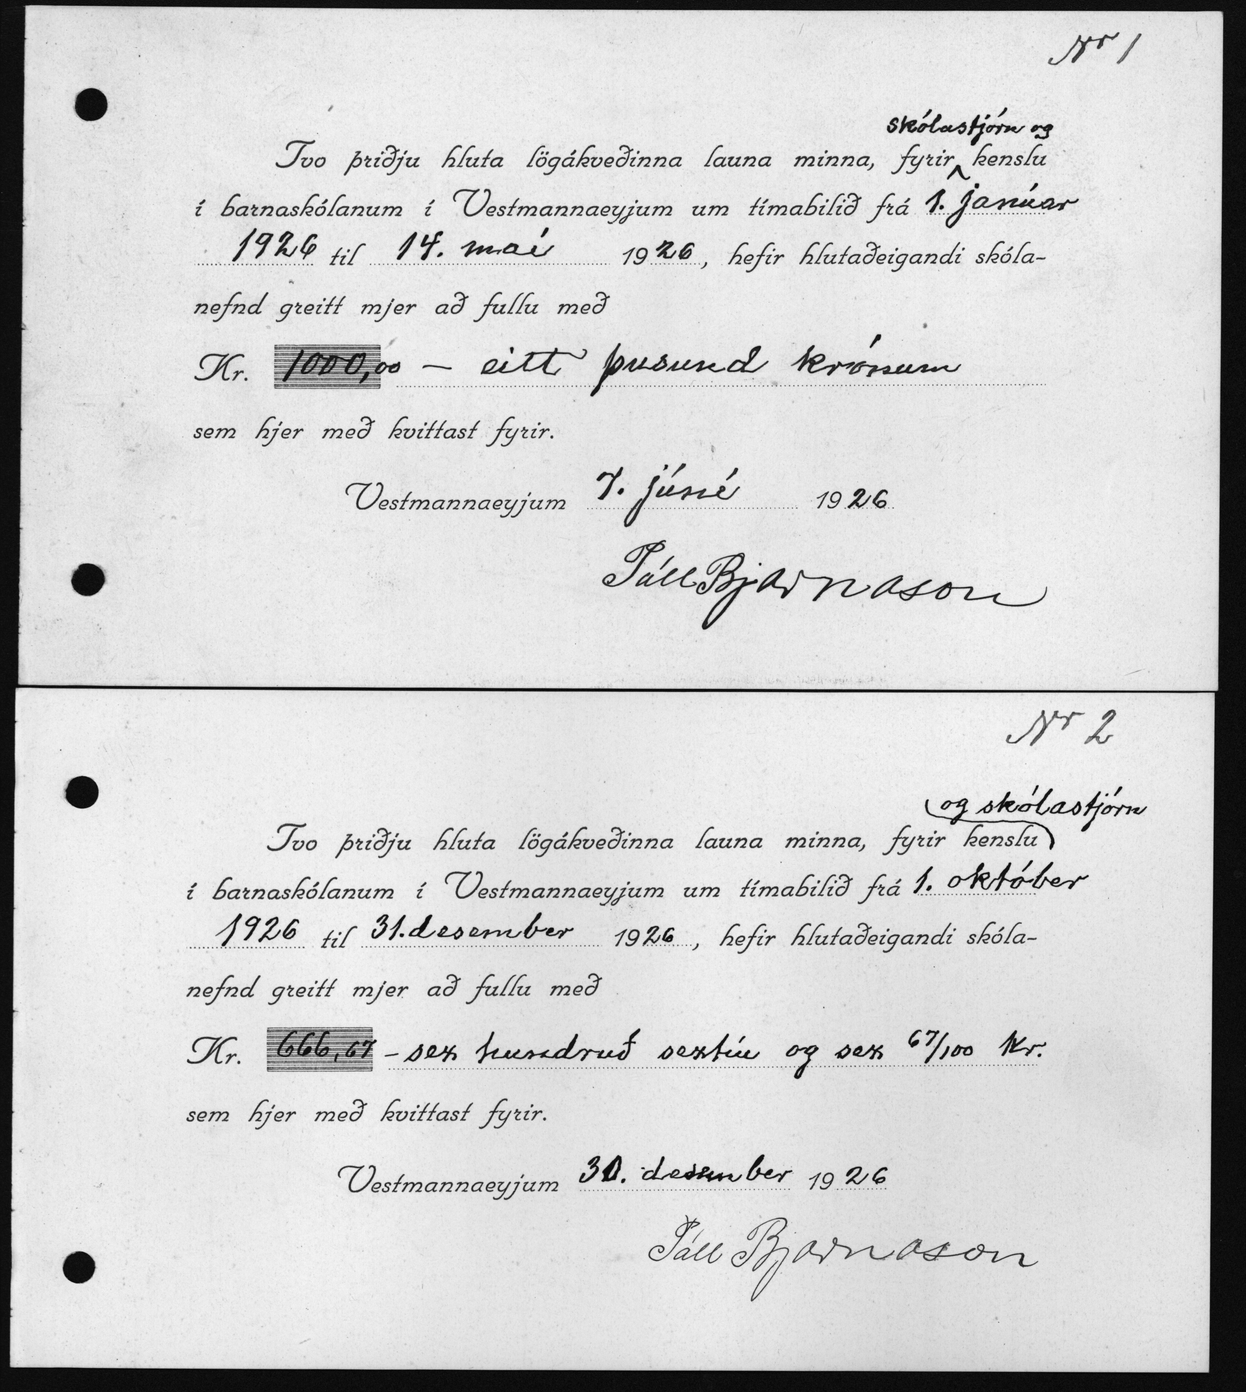 Nr 1
skólastjórn og
Tvo þriðju hluta lögákveðinna launa minna, fyrir kenslu
í barnaskólanum í Vestmannaeyjum um tímabilið frá 1. janúar
1926 til 14. maí 1926, hefir hlutaðeigandi skóla-
nefnd greitt mjer að fullu með
Kr. 1000,00 – eitt þusund krónum
sem hjer með kvittast fyrir.
Vestmannaeyjum 7. júní 1926
Páll Bjarnason
Nr 2
og skólastjórn
Tvo þriðju hluta lögákveðinna launa minna, fyrir kenslu
í barnaskólanum í Vestmannaeyjum um tímabilið frá 1. október
1926 til 31. desember 1926, hefir hlutaðeigandi skóla-
nefnd greitt mjer að fullu með
Kr. 666,67 – sex hundruð sextíu og sex 67/100 kr.
sem hjer með kvittast fyrir.
Vestmannaeyjum desember 1926
Páll Bjarnason